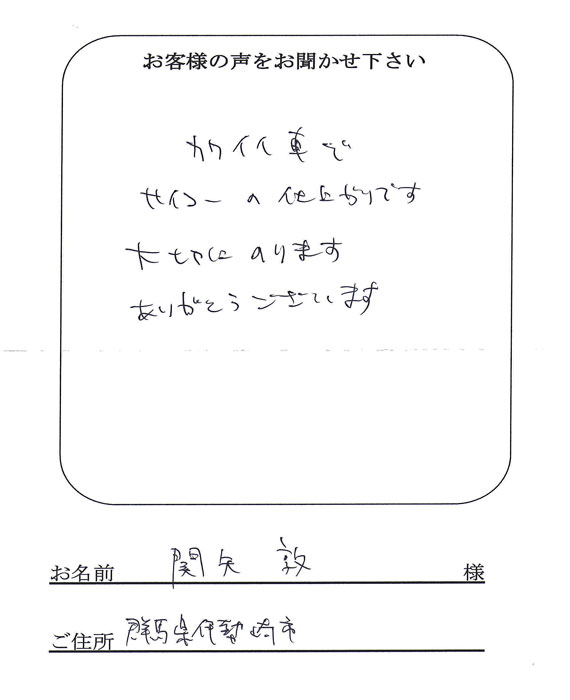 お客様の声をお聞かせ下さい
カワイイ車で
サイコーの仕上がりです
大切にのります
ありがとうございます
お名前 関矢 敦 様
ご住所 群馬県伊勢崎市